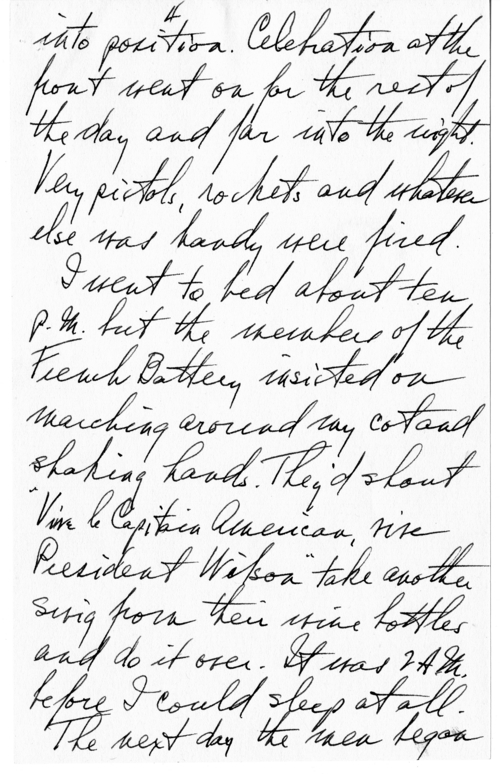 4
into position. Celebration at the
front went on for the rest of
the day and far into the night.
Very pistols, rockets and whatever
else was handy were fired.
I went to bed about ten
p.m. but the members of the
French Battery insisted on
marching around my cot and
shaking hands. They'd shout
"Vive le Capitain American, vive
President Wilson" take another
swig from their wine bottles
and do it over. It was 2 A.M.
before I could sleep at all.
The next day the men began